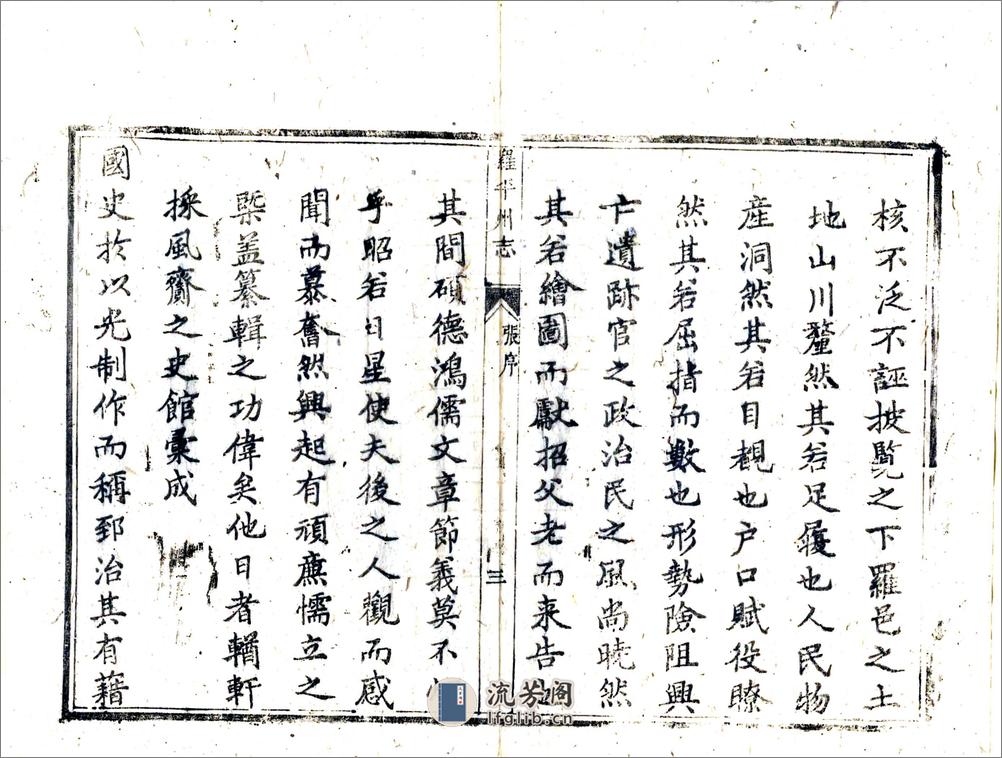 核不泛不誣披覽之下羅邑之土
地山川釐然其若足履也人民物
產洞然其若目覩也户口賦役瞭
然其若屈指而數也形勢險阻興
亡遺跡官之政治民之風尚曉然
其若繪圖而獻招父老而来告也
羅平州志
張序
三
其間碩德鴻儒文章節義莫不
乎昭若日星使夫後之人觀而感
聞而慕奮然興起有頑亷懦立之
槩盖纂輯之功偉矣他日者輶軒
採風齎之史館彚成
國史於以光制作而稱郅治其有藉
流芳阁
lfglib.cn